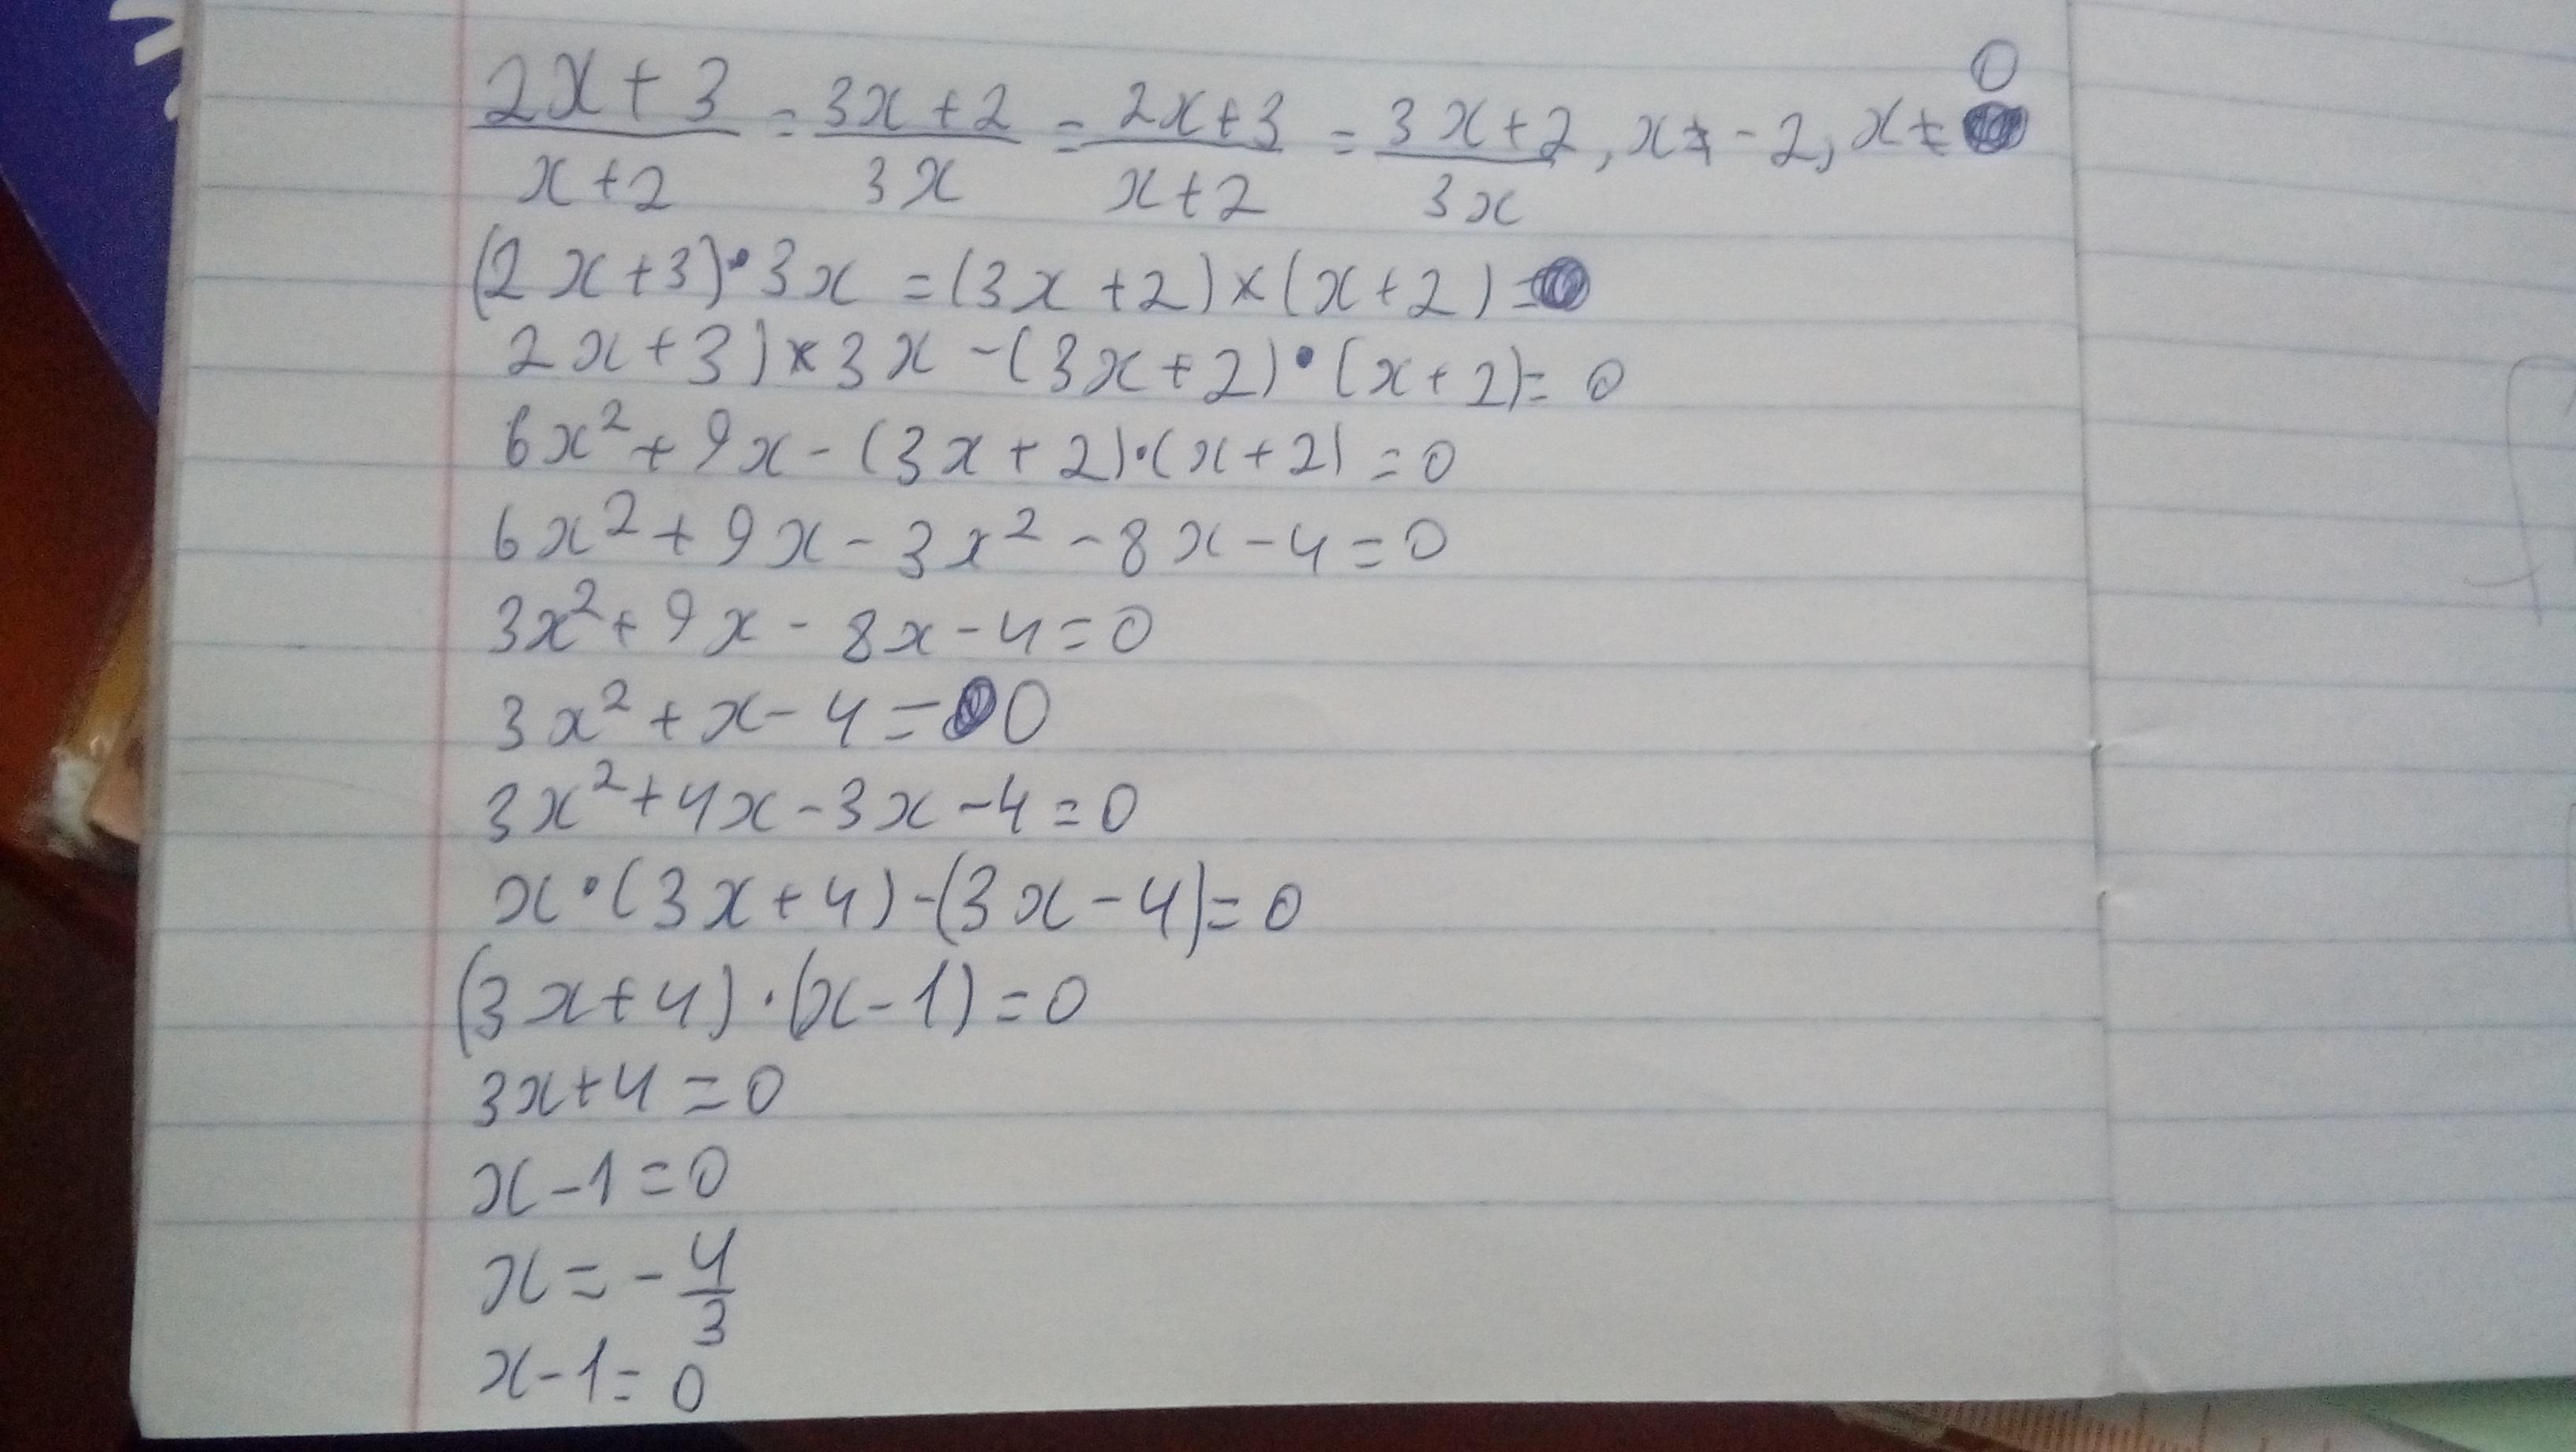 (2x+3)/(x+2) = (3x+2)/(3x) = (2x+3)/(x+2) = (3x+2)/(3x), x≠-2, x≠0
(2x+3)•3x = (3x+2)×(x+2) =
2x+3)×3x-(3x+2)•(x+2)=0
6x²+9x-(3x+2)·(x+2)=0
6x²+9x-3x²-8x-4=0
3x²+9x-8x-4=0
3x²+x-4=0
3x²+4x-3x-4=0
x•(3x+4)-(3x-4)=0
(3x+4)·(x-1)=0
3x+4=0
x-1=0
x=-4/3
x-1=0